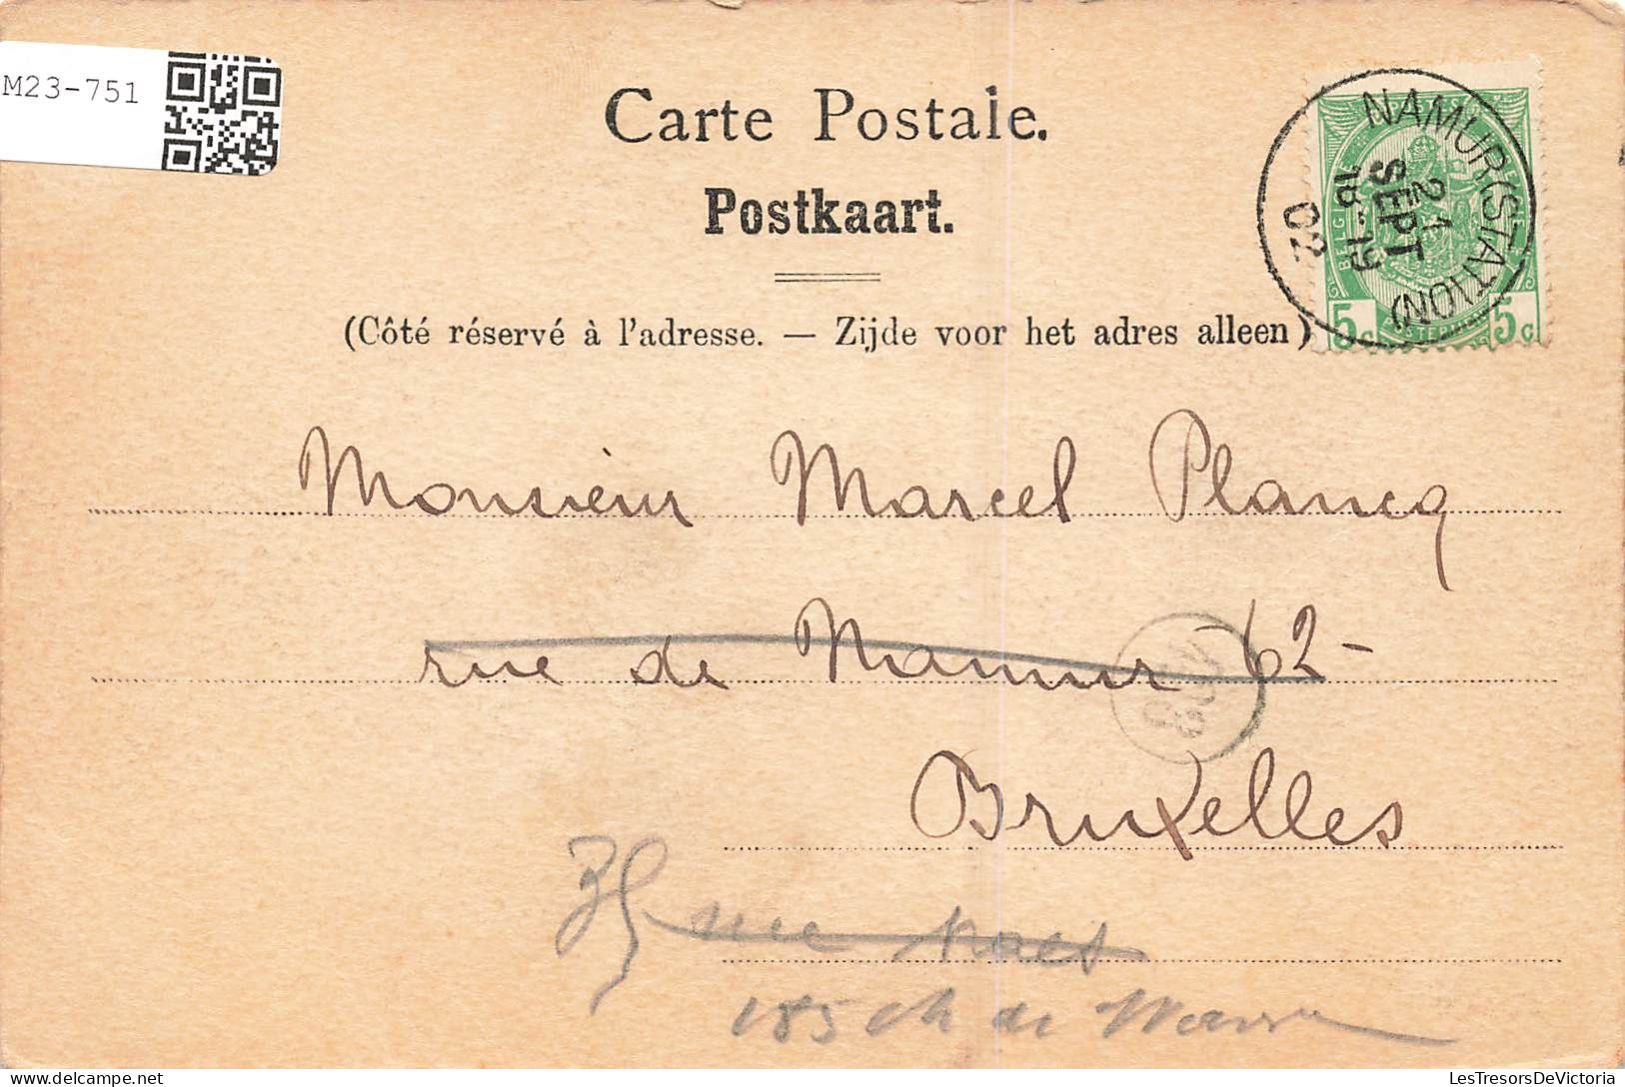 M23-751
Carte Postale.
Postkaart.
(Côté réservé à l'adresse. — Zijde voor het adres alleen)
NAMUR (STATION)
21
SEPT
18-19
02
BELGI
5c 5c
Monsieur Marcel Plancq
rue de Namur 62-
Bruxelles
rue
185 ch de Wavre
LesTresorsDeVictoria